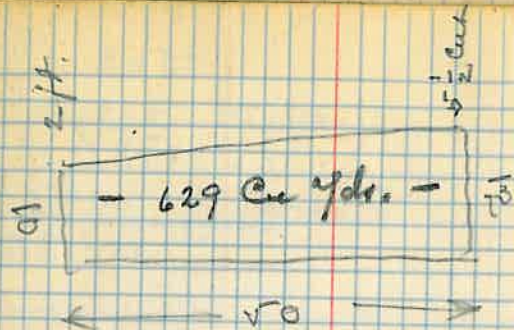 2 ft.
½ Cut
- 629 Cu Yds. -
10
50